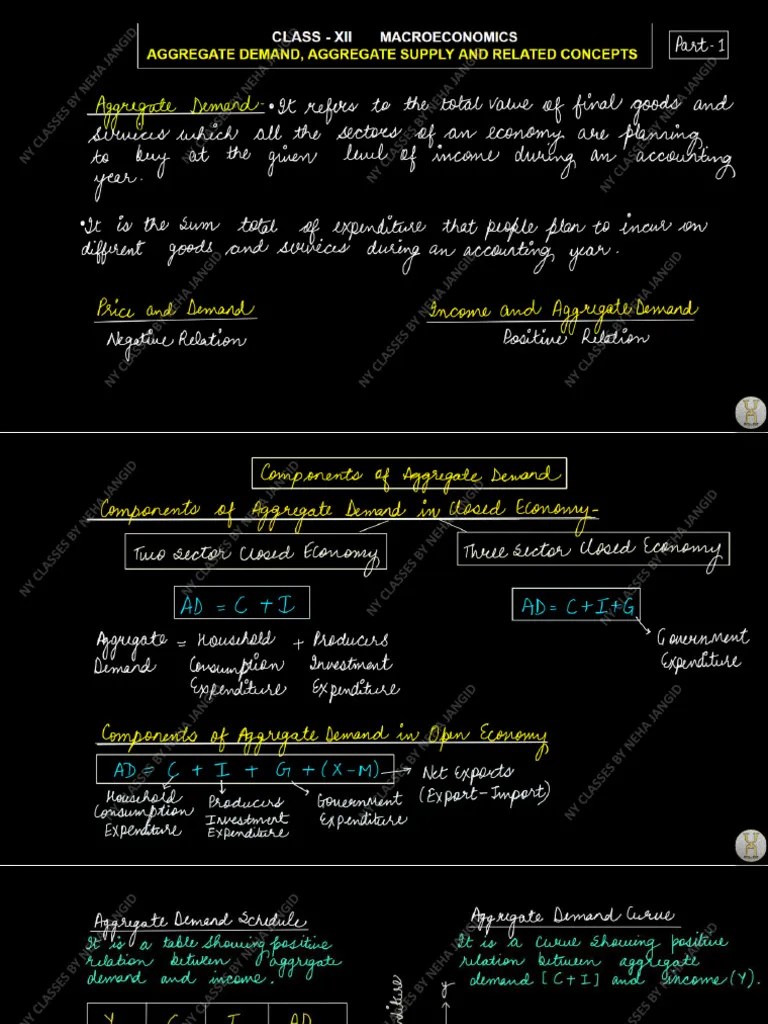 CLASS - XII MACROECONOMICS
AGGREGATE DEMAND, AGGREGATE SUPPLY AND RELATED CONCEPTS
Part-1
Aggregate Demand- •It refers to the total value of final goods and
services which all the sectors of an economy are planning
to buy at the given level of income during an accounting
year.
•It is the sum total of expenditure that people plan to incur on
different goods and services during an accounting year.
Price and Demand
Negative Relation
Income and Aggregate Demand
Positive Relation
Components of Aggregate Demand
Components of Aggregate Demand in Closed Economy-
Two Sector Closed Economy
Three Sector Closed Economy
AD = C + I
AD = C+I+G
Aggregate = Household + Producers
Demand Consumption Investment
Expenditure Expenditure
Government
Expenditure
Components of Aggregate Demand in Open Economy
AD = C + I + G + (X-M)
Net Exports
(Export-Import)
Household
Consumption
Expenditure
Producers
Investment
Expenditure
Government
Expenditure
Aggregate Demand Schedule
It is a table showing positive
relation between aggregate
demand and income.
Aggregate Demand Curve
It is a curve showing positive
relation between aggregate
demand [C+I] and income (Y).
Y C I AD
NY CLASSES BY NEHA JANGID